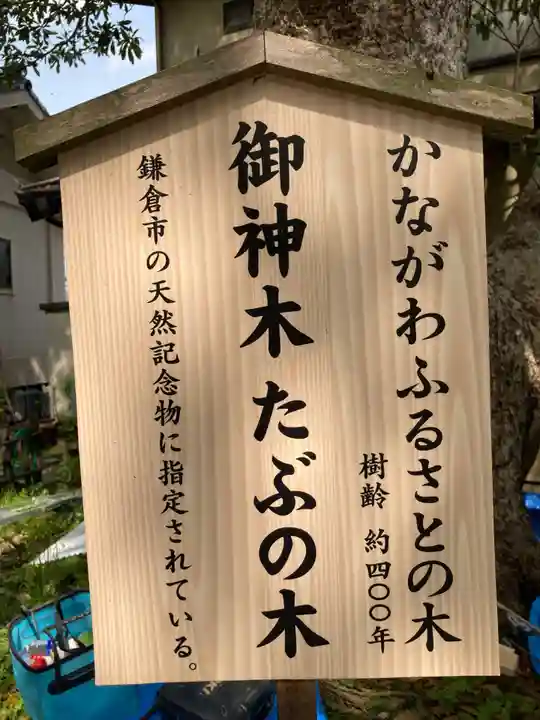 かながわふるさとの木
樹齢 約四〇〇年
御神木 たぶの木
鎌倉市の天然記念物に指定されている。